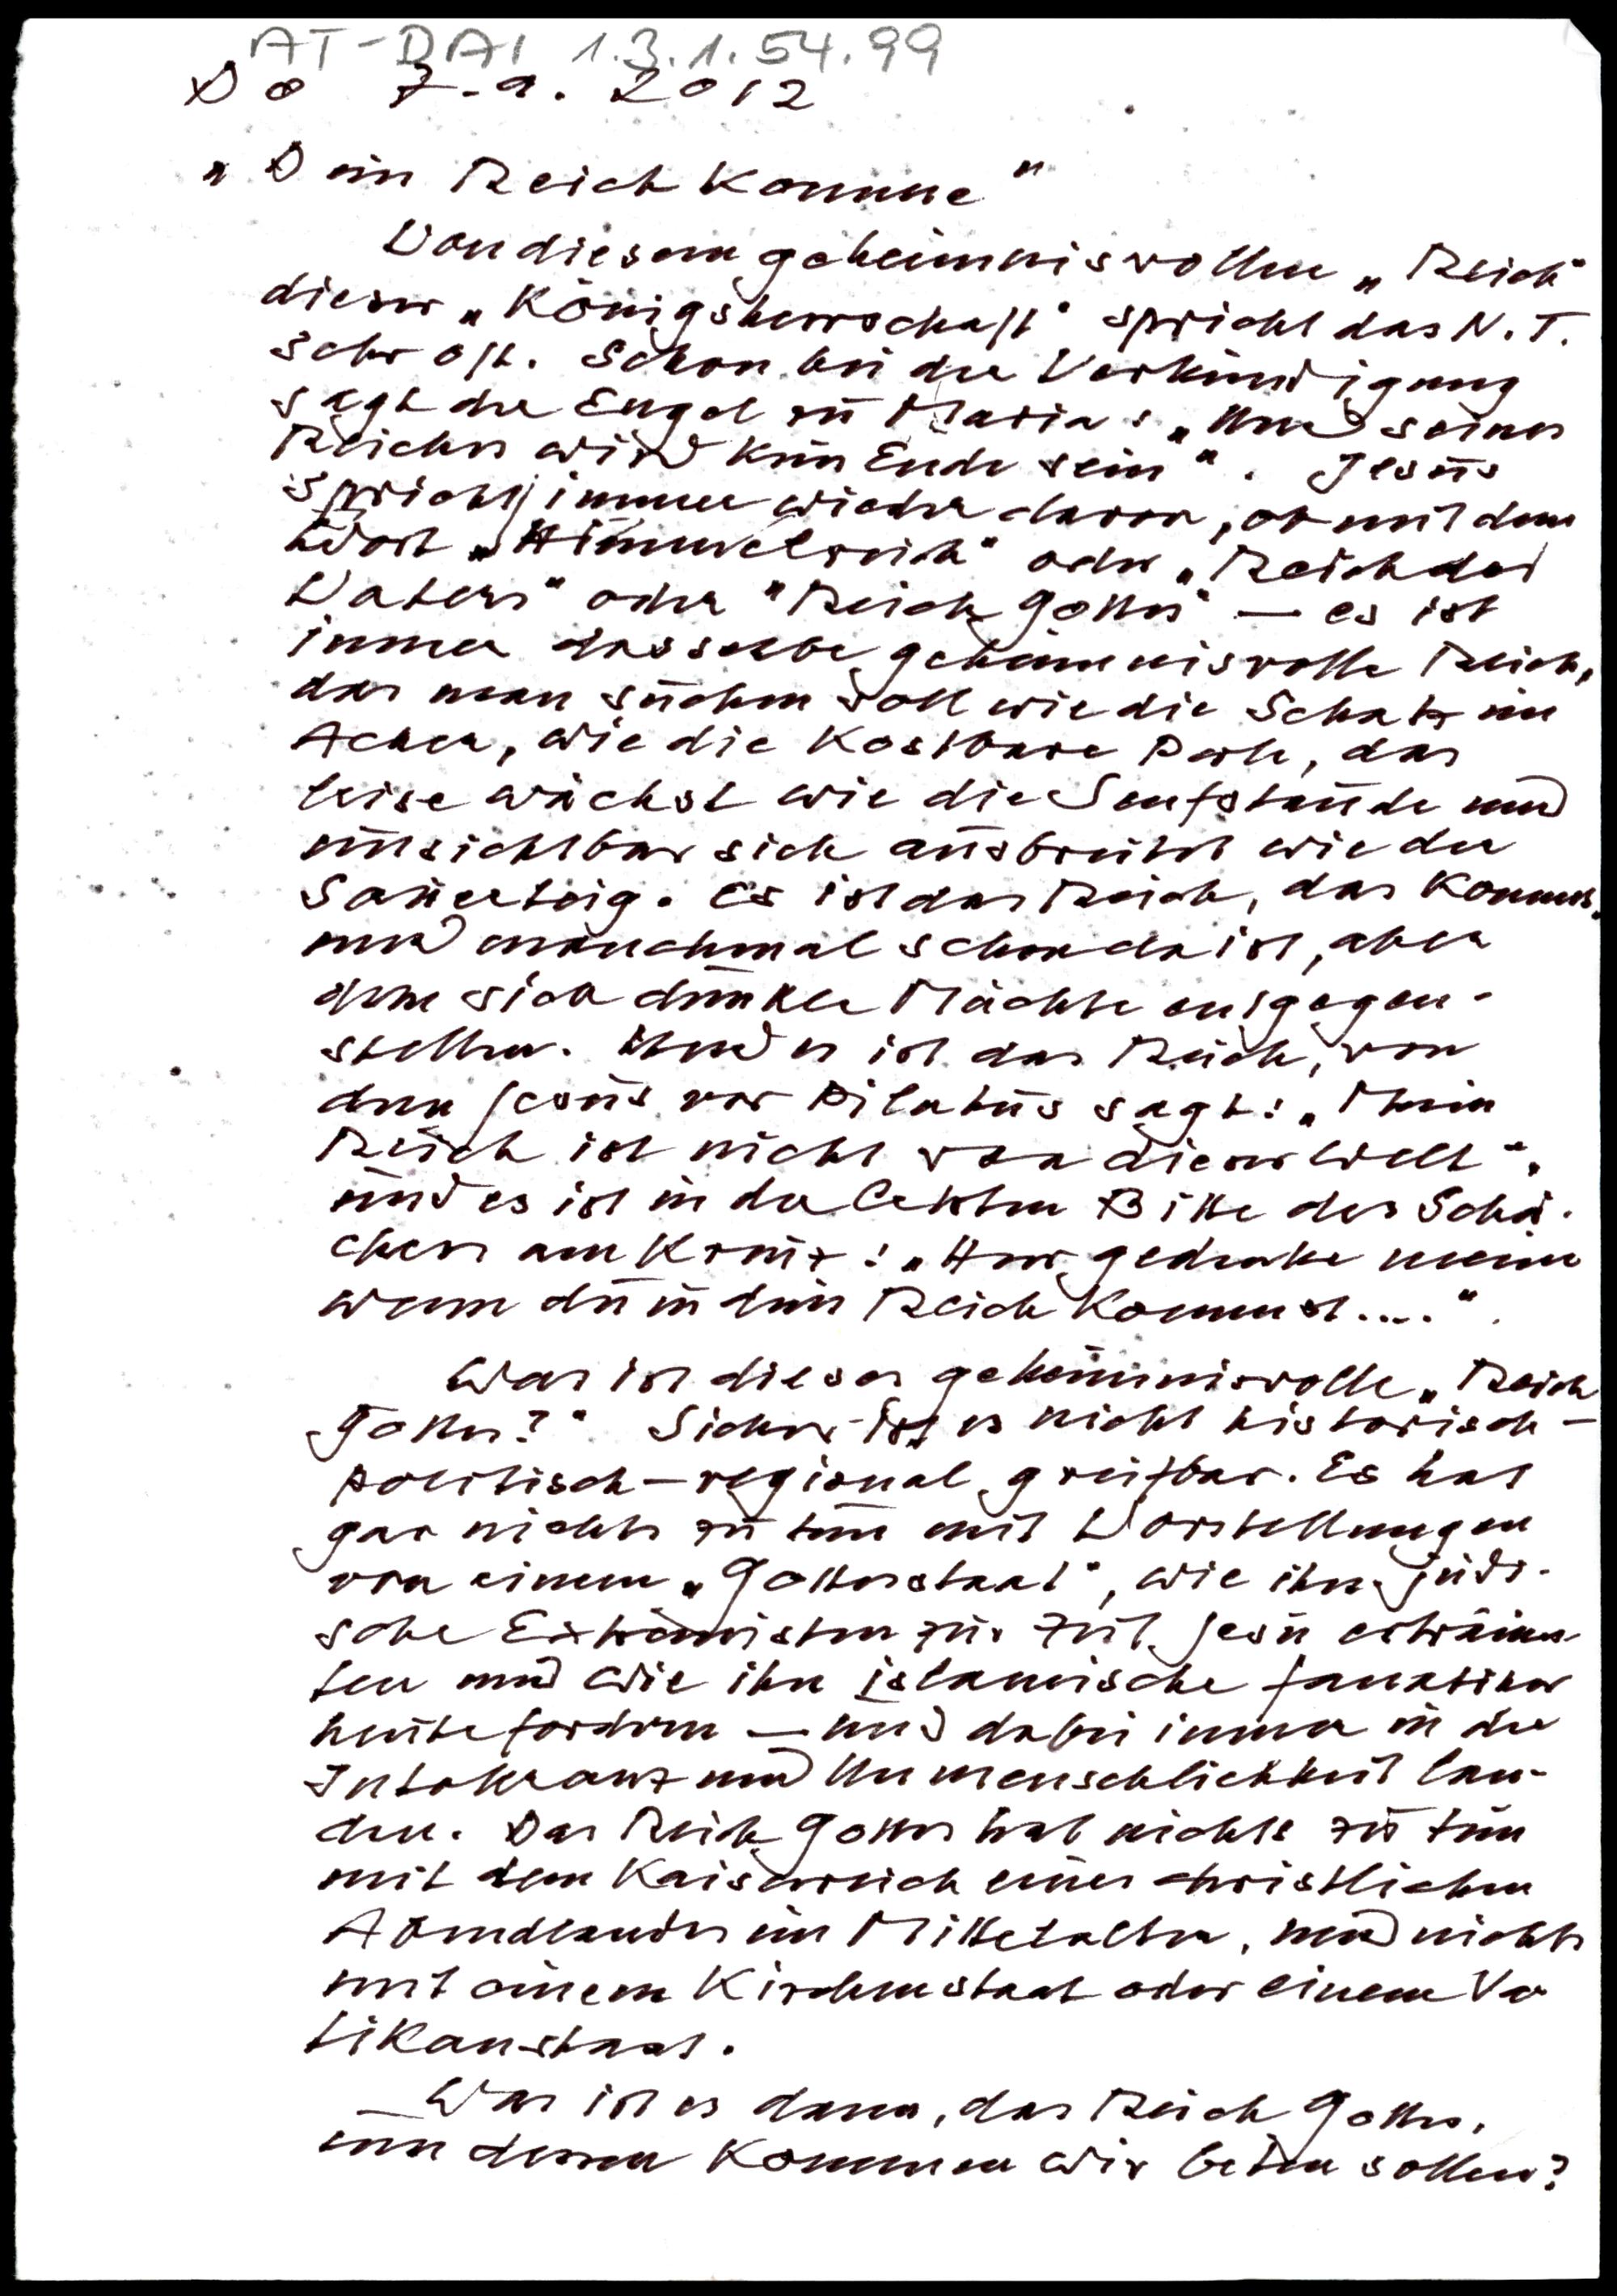 AT-DAI 1.3.1.54.99
Do 7.9.2012
„Dein Reich komme"
Von diesem geheimnisvollen „Reich"
dieser „Königsherrschaft" spricht das N.T.
sehr oft. Schon bei der Verkündigung
sagt der Engel zu Maria: „Und seines
Reiches wird kein Ende sein". Jesus
spricht immer wieder davon, ob mit dem
Wort „Himmelreich" oder „Reich des
Vaters" oder "Reich Gottes" — es ist
immer dasselbe geheimnisvolle Reich,
das man suchen soll wie die Schatz im
Acker, wie die kostbare Perle, das
leise wächst wie die Senfstaude und
unsichtbar sich ausbreitet wie der
Sauerteig. Es ist das Reich, das kommt,
und manchmal schon da ist, aber
dem sich dunkle Mächte entgegen-
stellen. Und es ist das Reich, von
dem Jesus vor Pilatus sagt: „Mein
Reich ist nicht von dieser Welt",
und es ist in der letzten Bitte des Schä-
chers am Kreuz: „Herr gedenke meiner
wenn du in dein Reich kommst...."
Was ist dieses geheimnisvolle „Reich
Gottes?" Sicher ist es nicht historisch-
politisch-regional greifbar. Es hat
gar nichts zu tun mit Vorstellungen
von einem „Gottesstaat", wie ihn jüdi-
sche Extremisten zur Zeit Jesu erträum-
ten und wie ihn islamische Fanatiker
heute fordern — und dabei immer in der
Intoleranz und Unmenschlichkeit lan-
den. Das Reich Gottes hat nichts zu tun
mit dem Kaiserreich eines christlichen
Abendlandes im Mittelalter, und nichts
mit einem Kirchenstaat oder einem Va
tikanstaat.
Was ist es dann, das Reich Gottes,
um dessen Kommen wir beten sollen?